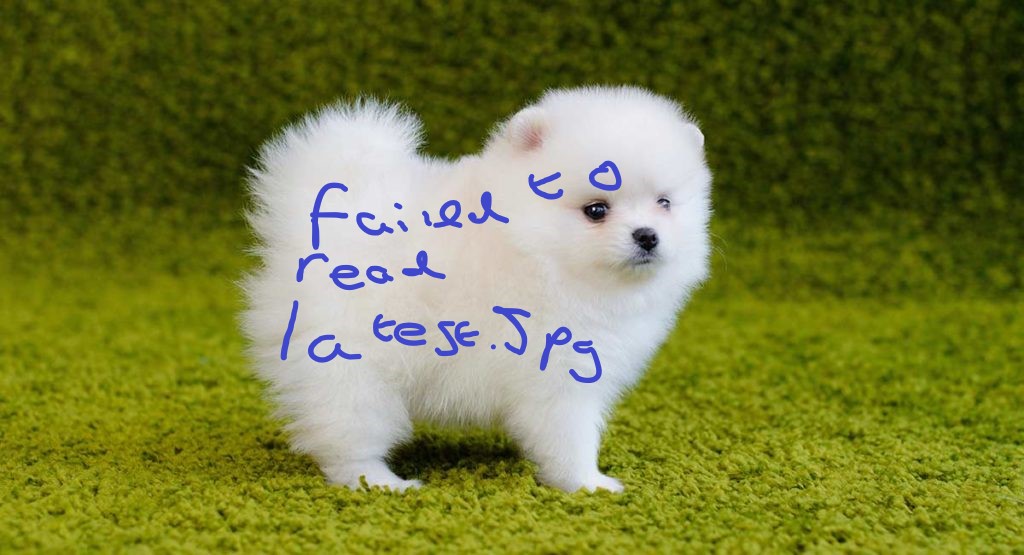 failed to
read
latest.jpg